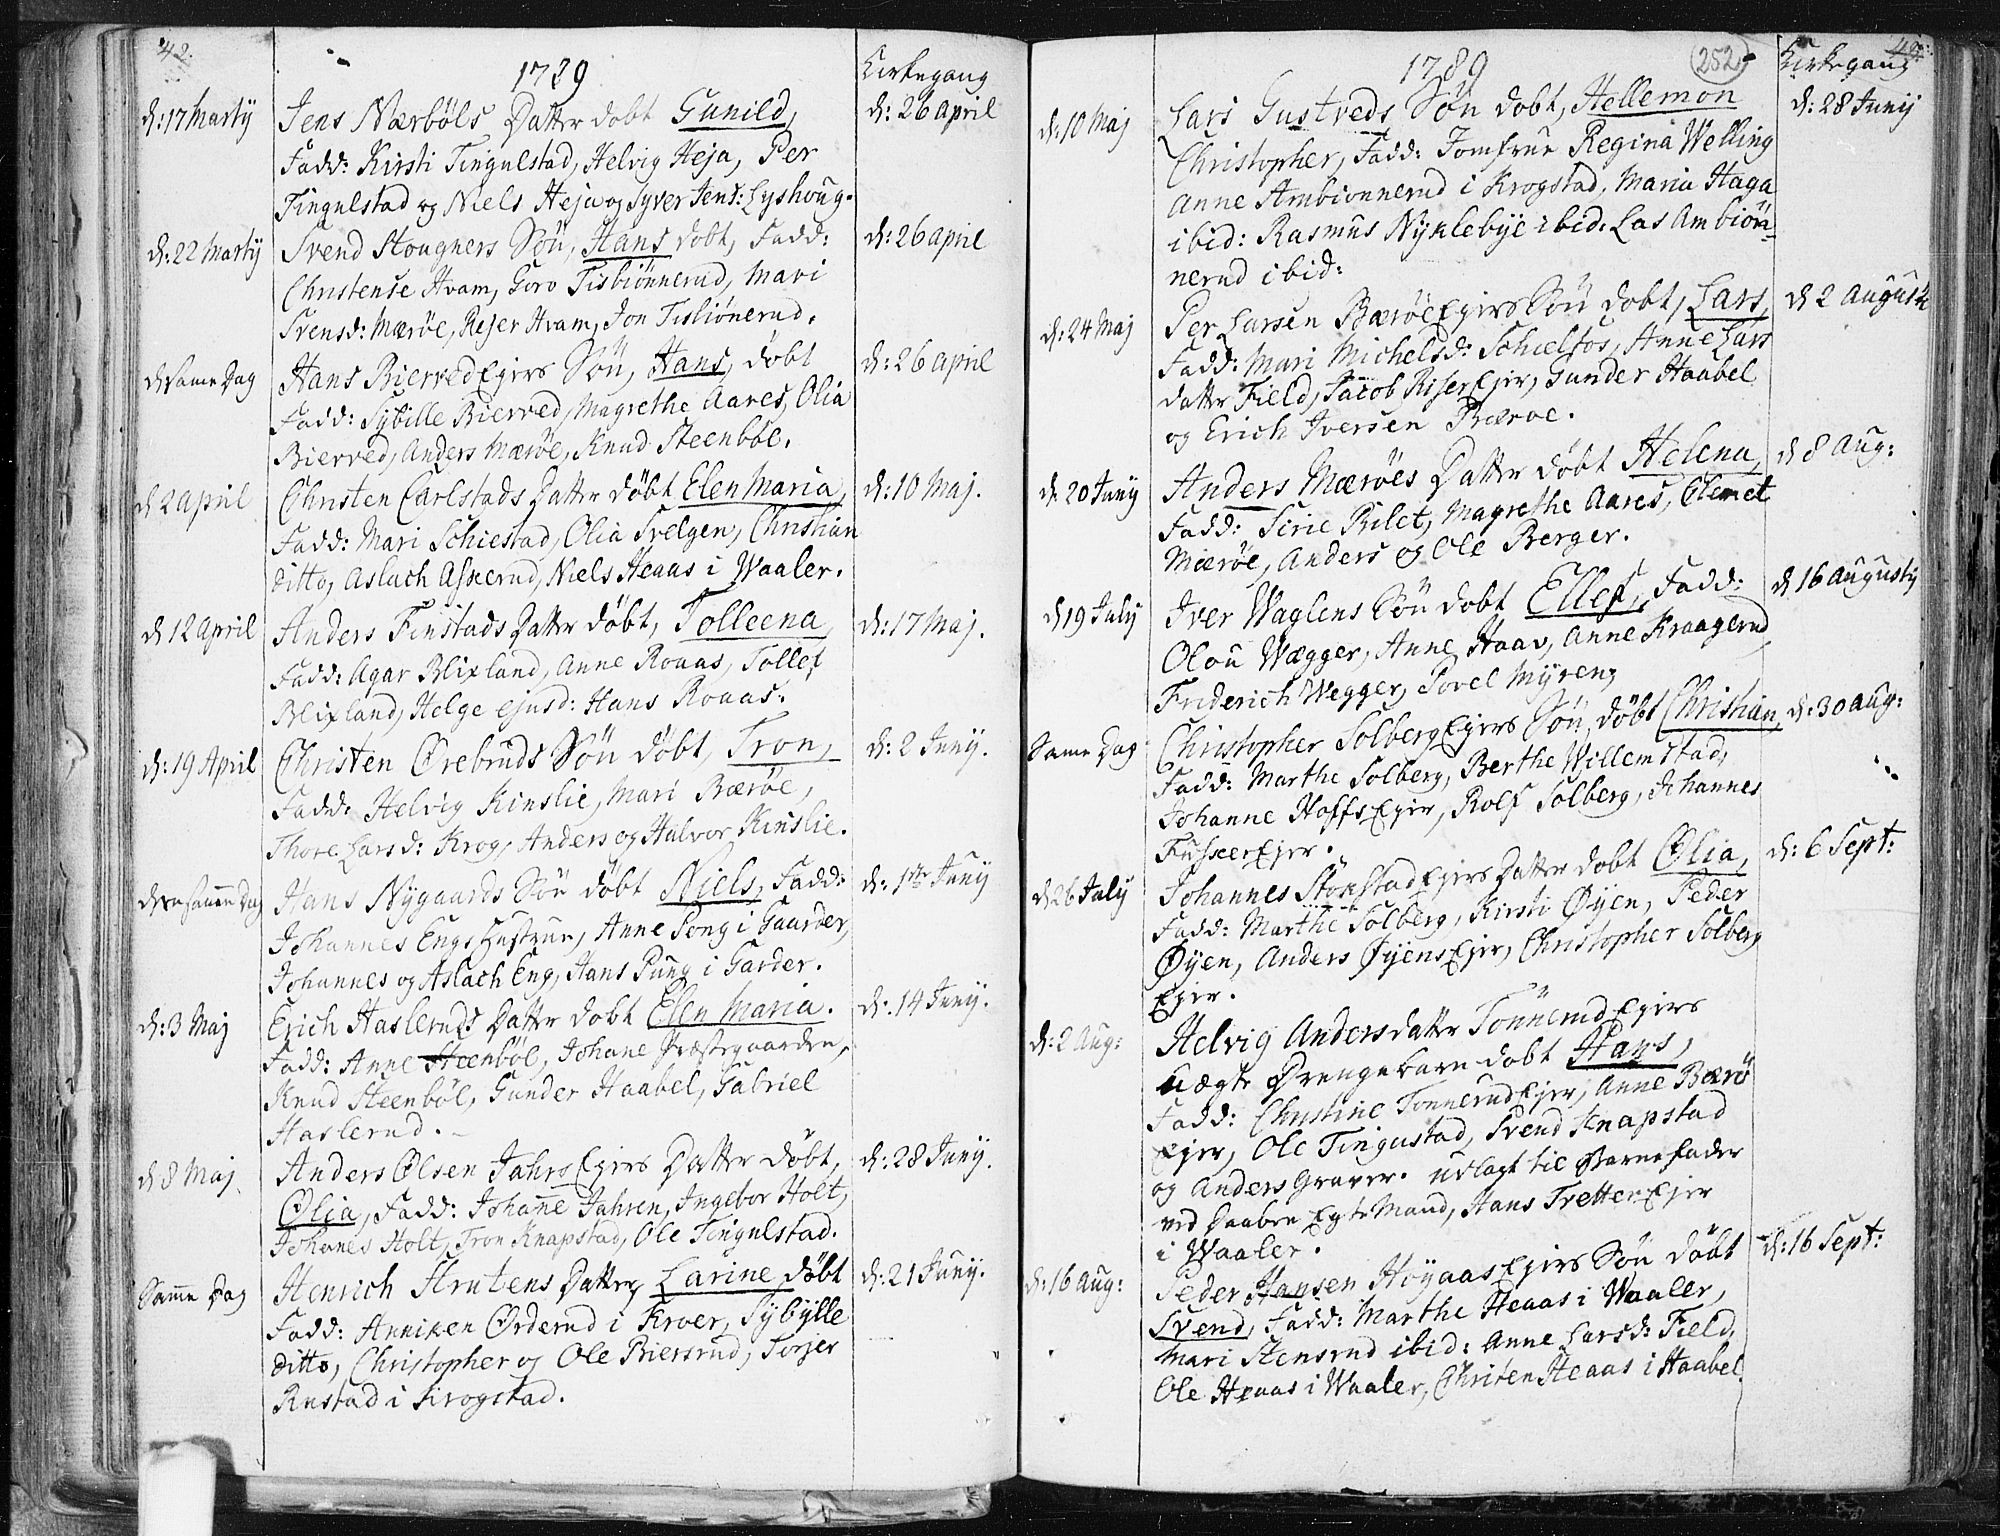 42.
1789
Kirkegang
d: 17 Martij
Jens Nærböls Datter döbt Gunild,
d: 26 April
Fadd: Kirsti Tingulstad, Helvig Heja, Per
Tingulstad og Niels Heja og Syver Jens: Lyshoug.
d: 22 Martij
Svend Stougners Sön, Hans döbt, Fadd:
d: 26 April
Christense Hvam, Goro Tisbiönnerud, Mari
Svensd: Mæröe, Rejer Hvam, Jon Tisbiönerud.
d: Same Dag
Hans Bierved Eiers Sön, Hans, döbt
d: 26 April
Fadd: Sybille Bierved, Magrethe Aares, Olia
Bierved, Anders Mæröe, Knud Steenböl.
d 2 April
Christen Carlstads Datter döbt Elen Maria,
d: 10 Maj.
Fadd: Mari Schiestad, Olia Svelgen, Christian
ditto, Aslach Askerud, Niels Heaas i Waaler.
d 12 April
Anders Finstads Datter döbt, Tolleena,
d: 17 Maj.
Fadd: Agar Blixland, Anne Roaas, Tollef
Blixland, Helge ejusd: Hans Roaas.
d: 19 April
Christen Örebruds Sön döbt, Tron,
d: 2 Junij.
Fadd: Helvig Kinslie, Mari Bæröe,
Thore Larsd: Krog, Anders og Halvor Kinslie.
den samen Dag
Hans Nygaards Sön döbt Niels, Fadd:
d: 1ste Junij
Johannes Engs Hustrue, Anne Pong i Gaarder,
Johannes og Aslach Eng, Hans Pung i Garder.
d: 3 Maj
Erich Hasleruds Datter döbt Elen Maria.
d: 14 Junij.
Fadd: Anne Steenböl, Johane Præstegaarden,
Knud Steenböl, Gunder Haabel, Gabriel
Haslerud.
d 8 Maj
Anders Olsen Jahrs Eiers Datter döbt,
d: 28 Junij.
Olia, Fadd: Johane Jahren, Ingebor Holt,
Johanes Holt, Tron Knapstad, Ole Tingulstad.
Same Dag
Henrich Strutens Datter, Larine döbt
d: 21 Junij.
Fadd: Anniken Örderud i Kroer, Sybylle
ditto, Christopher og Ole Biersrud, Torjer
Rustad i Krogstad.
252
1789
Kirkegang
d: 10 Maj
Lars Gustveds Sön döbt, Hellemon
d: 28 Junij
Christopher, Fadd: Jomfrue Regina Welling
Anne Ambionnerud i Krogstad, Maria Haga
ibid: Rasmus Nyklebye ibid: Las Ambiön-
nerud ibid:
d: 24 Maj
Per Larsen Bæröe Eiers Sön döbt, Lars,
d 2 Augustij
Fadd: Mari Michelsd: Schielfos, Anne Lars
datter Field, Jacob Riser Ejer, Gunder Haabel
og Erich Iversen Bæroe.
d. 20 Junij
Anders Mæröes Datter döbt Helena,
d 8 Aug:
Fadd: Sirie Bilet, Magrethe Aares, Clemet
Mæröe, Anders og Ole Berger.
d 19 July
Iver Waglens Sön döbt Ellef, Fadd:
d 16 Augustij
Olou Wægger, Anne Haav, Anne Kraagerud,
Friderich Wegger, Povel Myren,
Same Dag
Christopher Solberg Eiers Sön döbt Christian,
d: 30 Aug:
Fadd: Marthe Solberg, Berthe Willemstad,
Johanne Hoffs Ejer, Rolf Solberg, Johannes
Fusker Ejer.
d 26 July
Johannes Stokstad Eiers Datter döbt Olia,
d: 6 Sept:
Fadd: Marthe Solberg, Kirsti Öyen, Peder
Öyen, Anders Öyens Ejer, Christopher Solberg
Ejer.
d: 2 Aug:
Helvig Andersdatter Tönnerud Eiers
uægte Drengebarn döbt Hans,
Fadd: Christine Tonnerud Ejer, Anne Bærö
Ejer, Ole Tingustad, Svend Knapstad
og Anders Graver. udlagt til Barnefader
ved Daaben Egte Mand, Hans Tretter Ejer
i Waaler.
d: 16 Aug:
Peder Hansen Höyaas Eiers Sön döbt
d: 16 Sept:
Svend, Fadd: Marthe Heaas i Waaler,
Mari Stensrud ibid: Anne Larsd: Field,
Ole Heaas i Waaler, Christen Heaas i Haabel